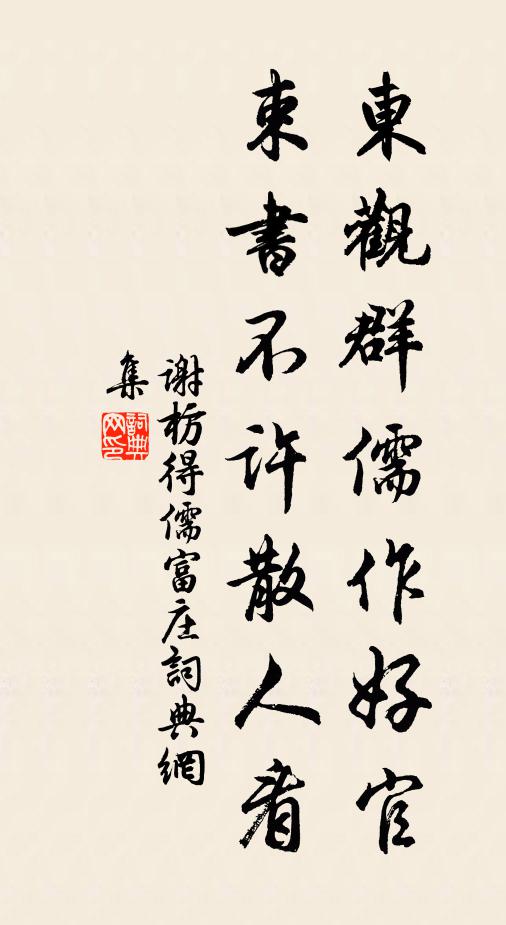 東觀群儒作好官
束書不許散人看
謝枋得儒富庄詞典網
集
詞典
网印